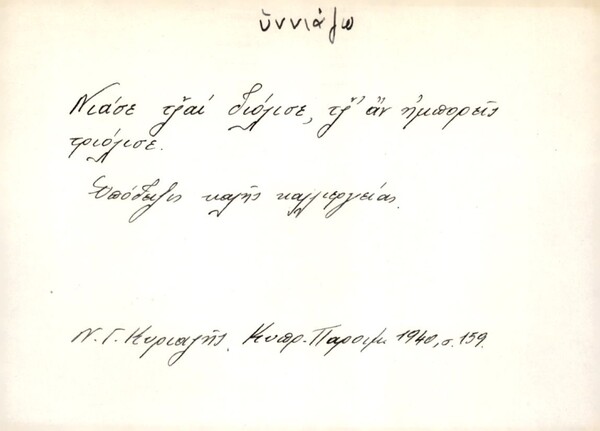 ὑννιάζω
Νιάσε τζ̌αί διόλισε, τζ̌' ἄν ἠμπορεῖς
τριόλισε.
Ὑπόδειξις καλῆς καλλιεργείας.
Ν. Γ. Κυριαζῆς, Κυπρ. Παροιμ. 1940, σ. 159.